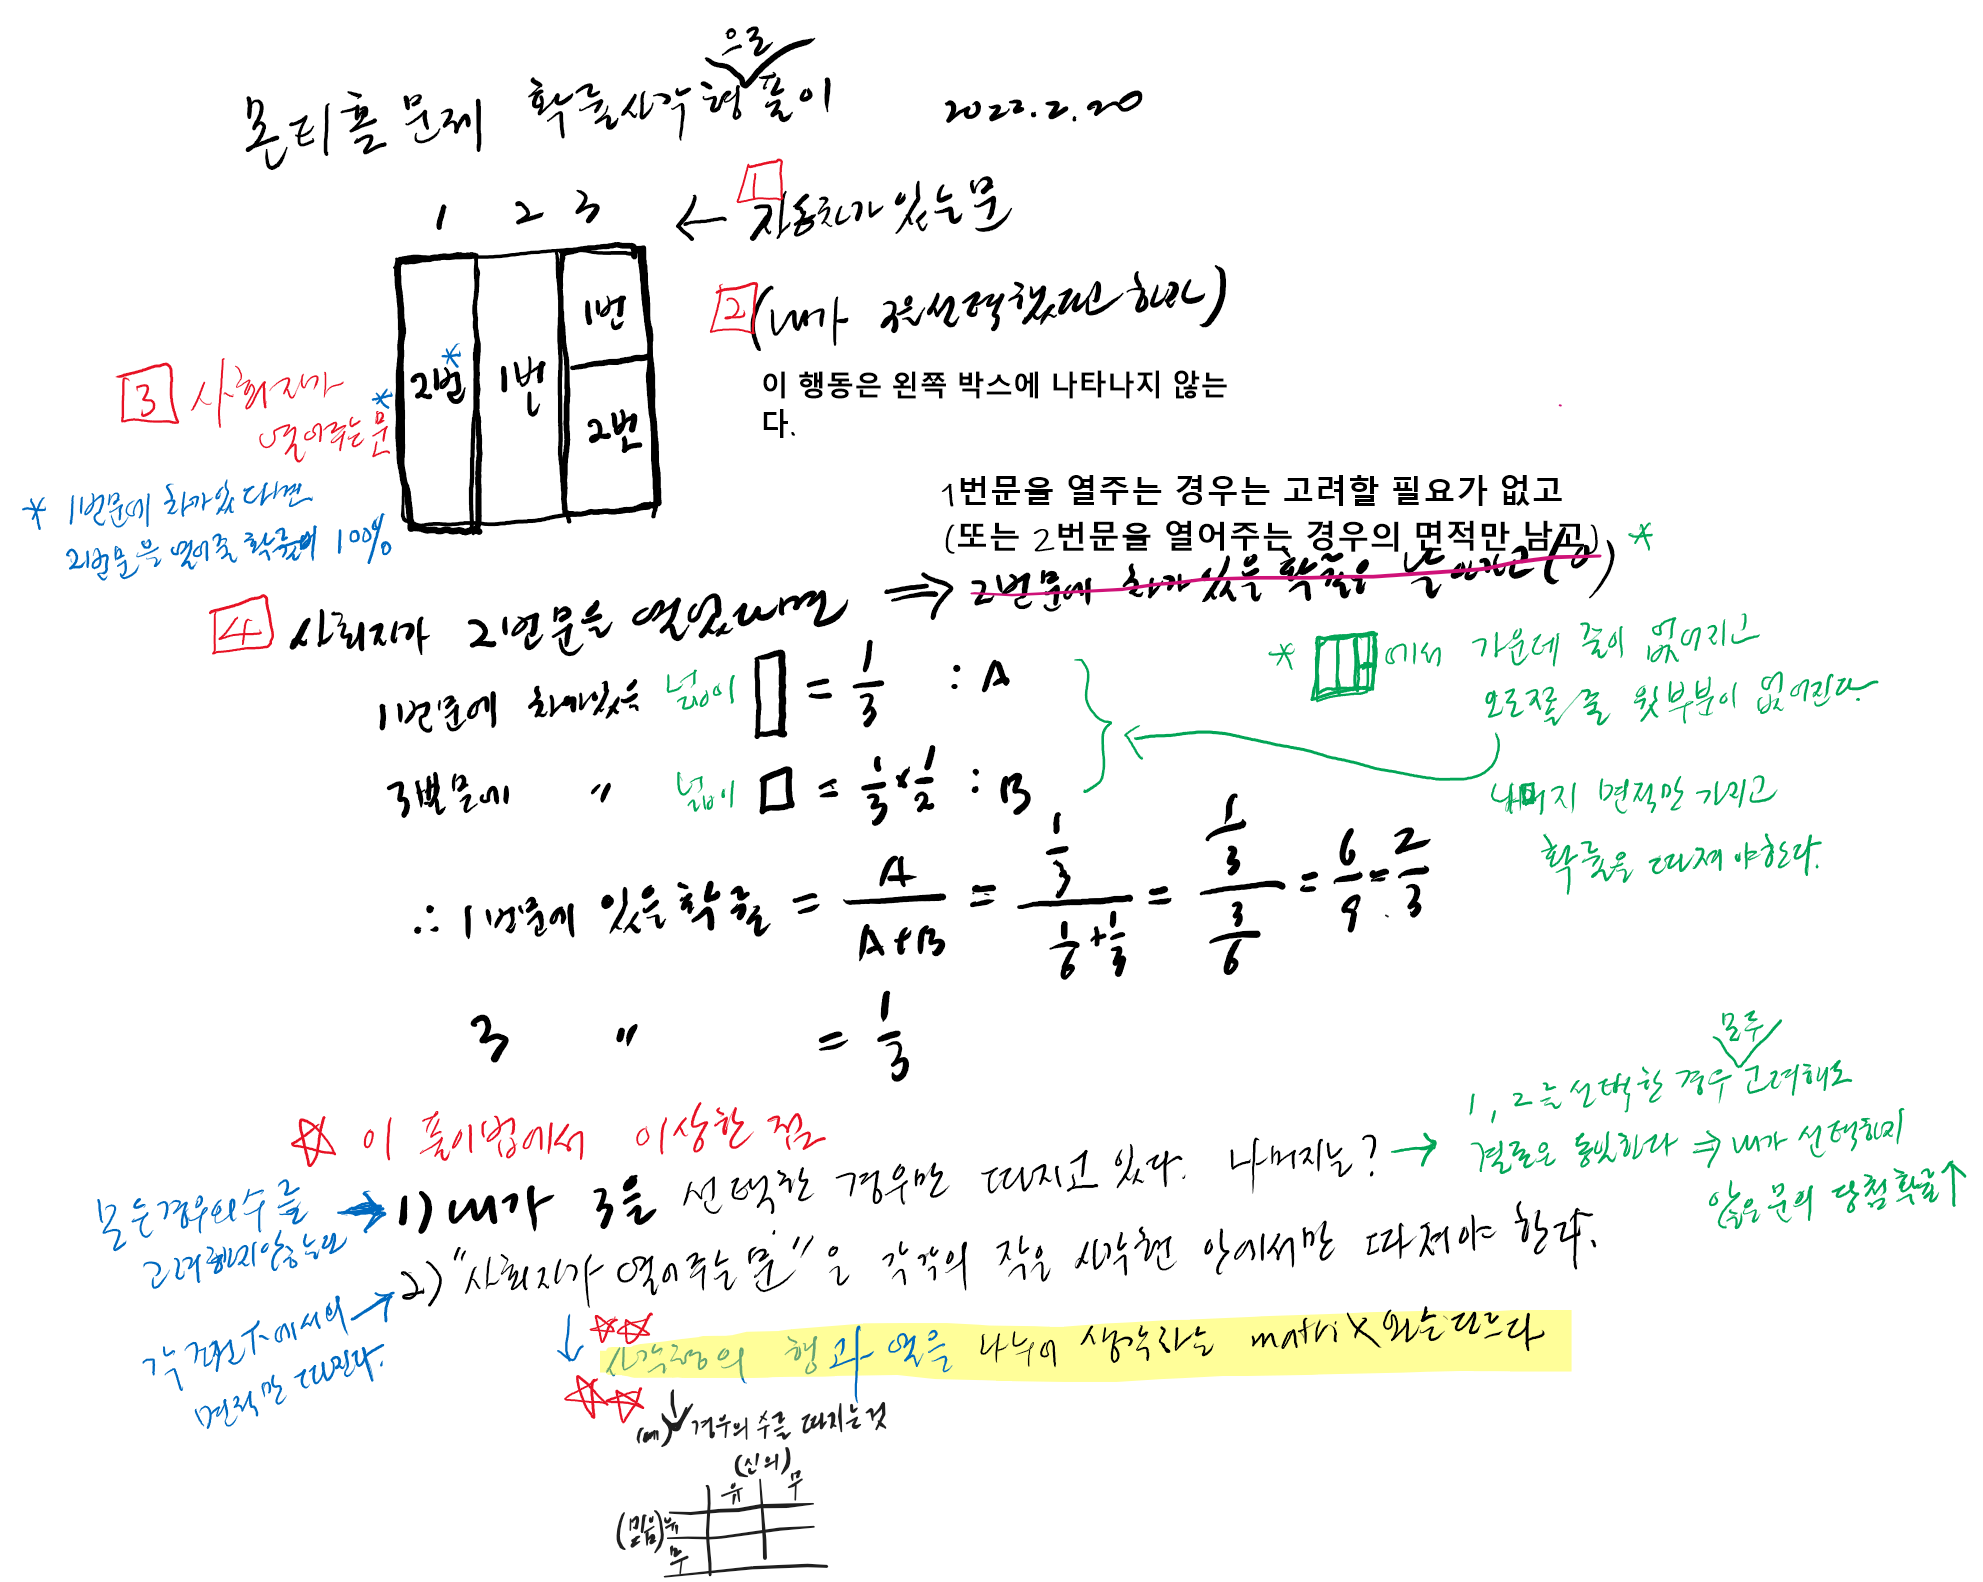 으로
몬티홀 문제 확률사각형 풀이 2022.2.20
1 2 3 ← 1 자동차가 있는 문
2 (내가 3을 선택했다고 하자)
이 행동은 왼쪽 박스에 나타나지 않는
다.
1번
2번* 1번
2번
3 사회자가
열어주는 문*
* 1번문에 차가 있다면
2번문을 열어줄 확률이 100%
1번문을 열주는 경우는 고려할 필요가 없고
(또는 2번문을 열어주는 경우의 면적만 남고) *
4 사회자가 2번문을 열었다면 ⇒ 2번문에 차가 있을 확률은
* 에서 가운데 줄이 없어지고
오른쪽 줄 윗부분이 없어진다.
나머지 면적만 가지고
확률을 따져야한다.
1번문에 차가있을 넓이 = 1/3 : A
3번문에 〃 넓이 = 1/3 × 1/2 : B
∴ 1번문에 있을 확률 = A/(A+B) = (1/3)/(1/6+1/3) = (1/3)/(3/6) = 6/9 = 2/3
3 〃 = 1/3
☆ 이 풀이법에서 이상한 점
1) 내가 3을 선택한 경우만 따지고 있다. 나머지는? →
모두
1, 2를 선택한 경우 고려해도
결론은 동일하다 ⇒ 내가 선택하지
않은 문의 당첨확률↑
모든경우의 수를 →
고려하지 않는다
2) "사회자가 열어주는 문"을 각각의 작은 사각형 안에서만 따져야 한다.
각 조건下에서의 →
면적만 따진다.
↓ ☆☆ 사각형의 행과 열을 나누어 생각하는 matrix와는 다르다
☆☆
↓
(예) 경우의 수를 따지는 것
(신의)
유 무
(믿음) 유
무